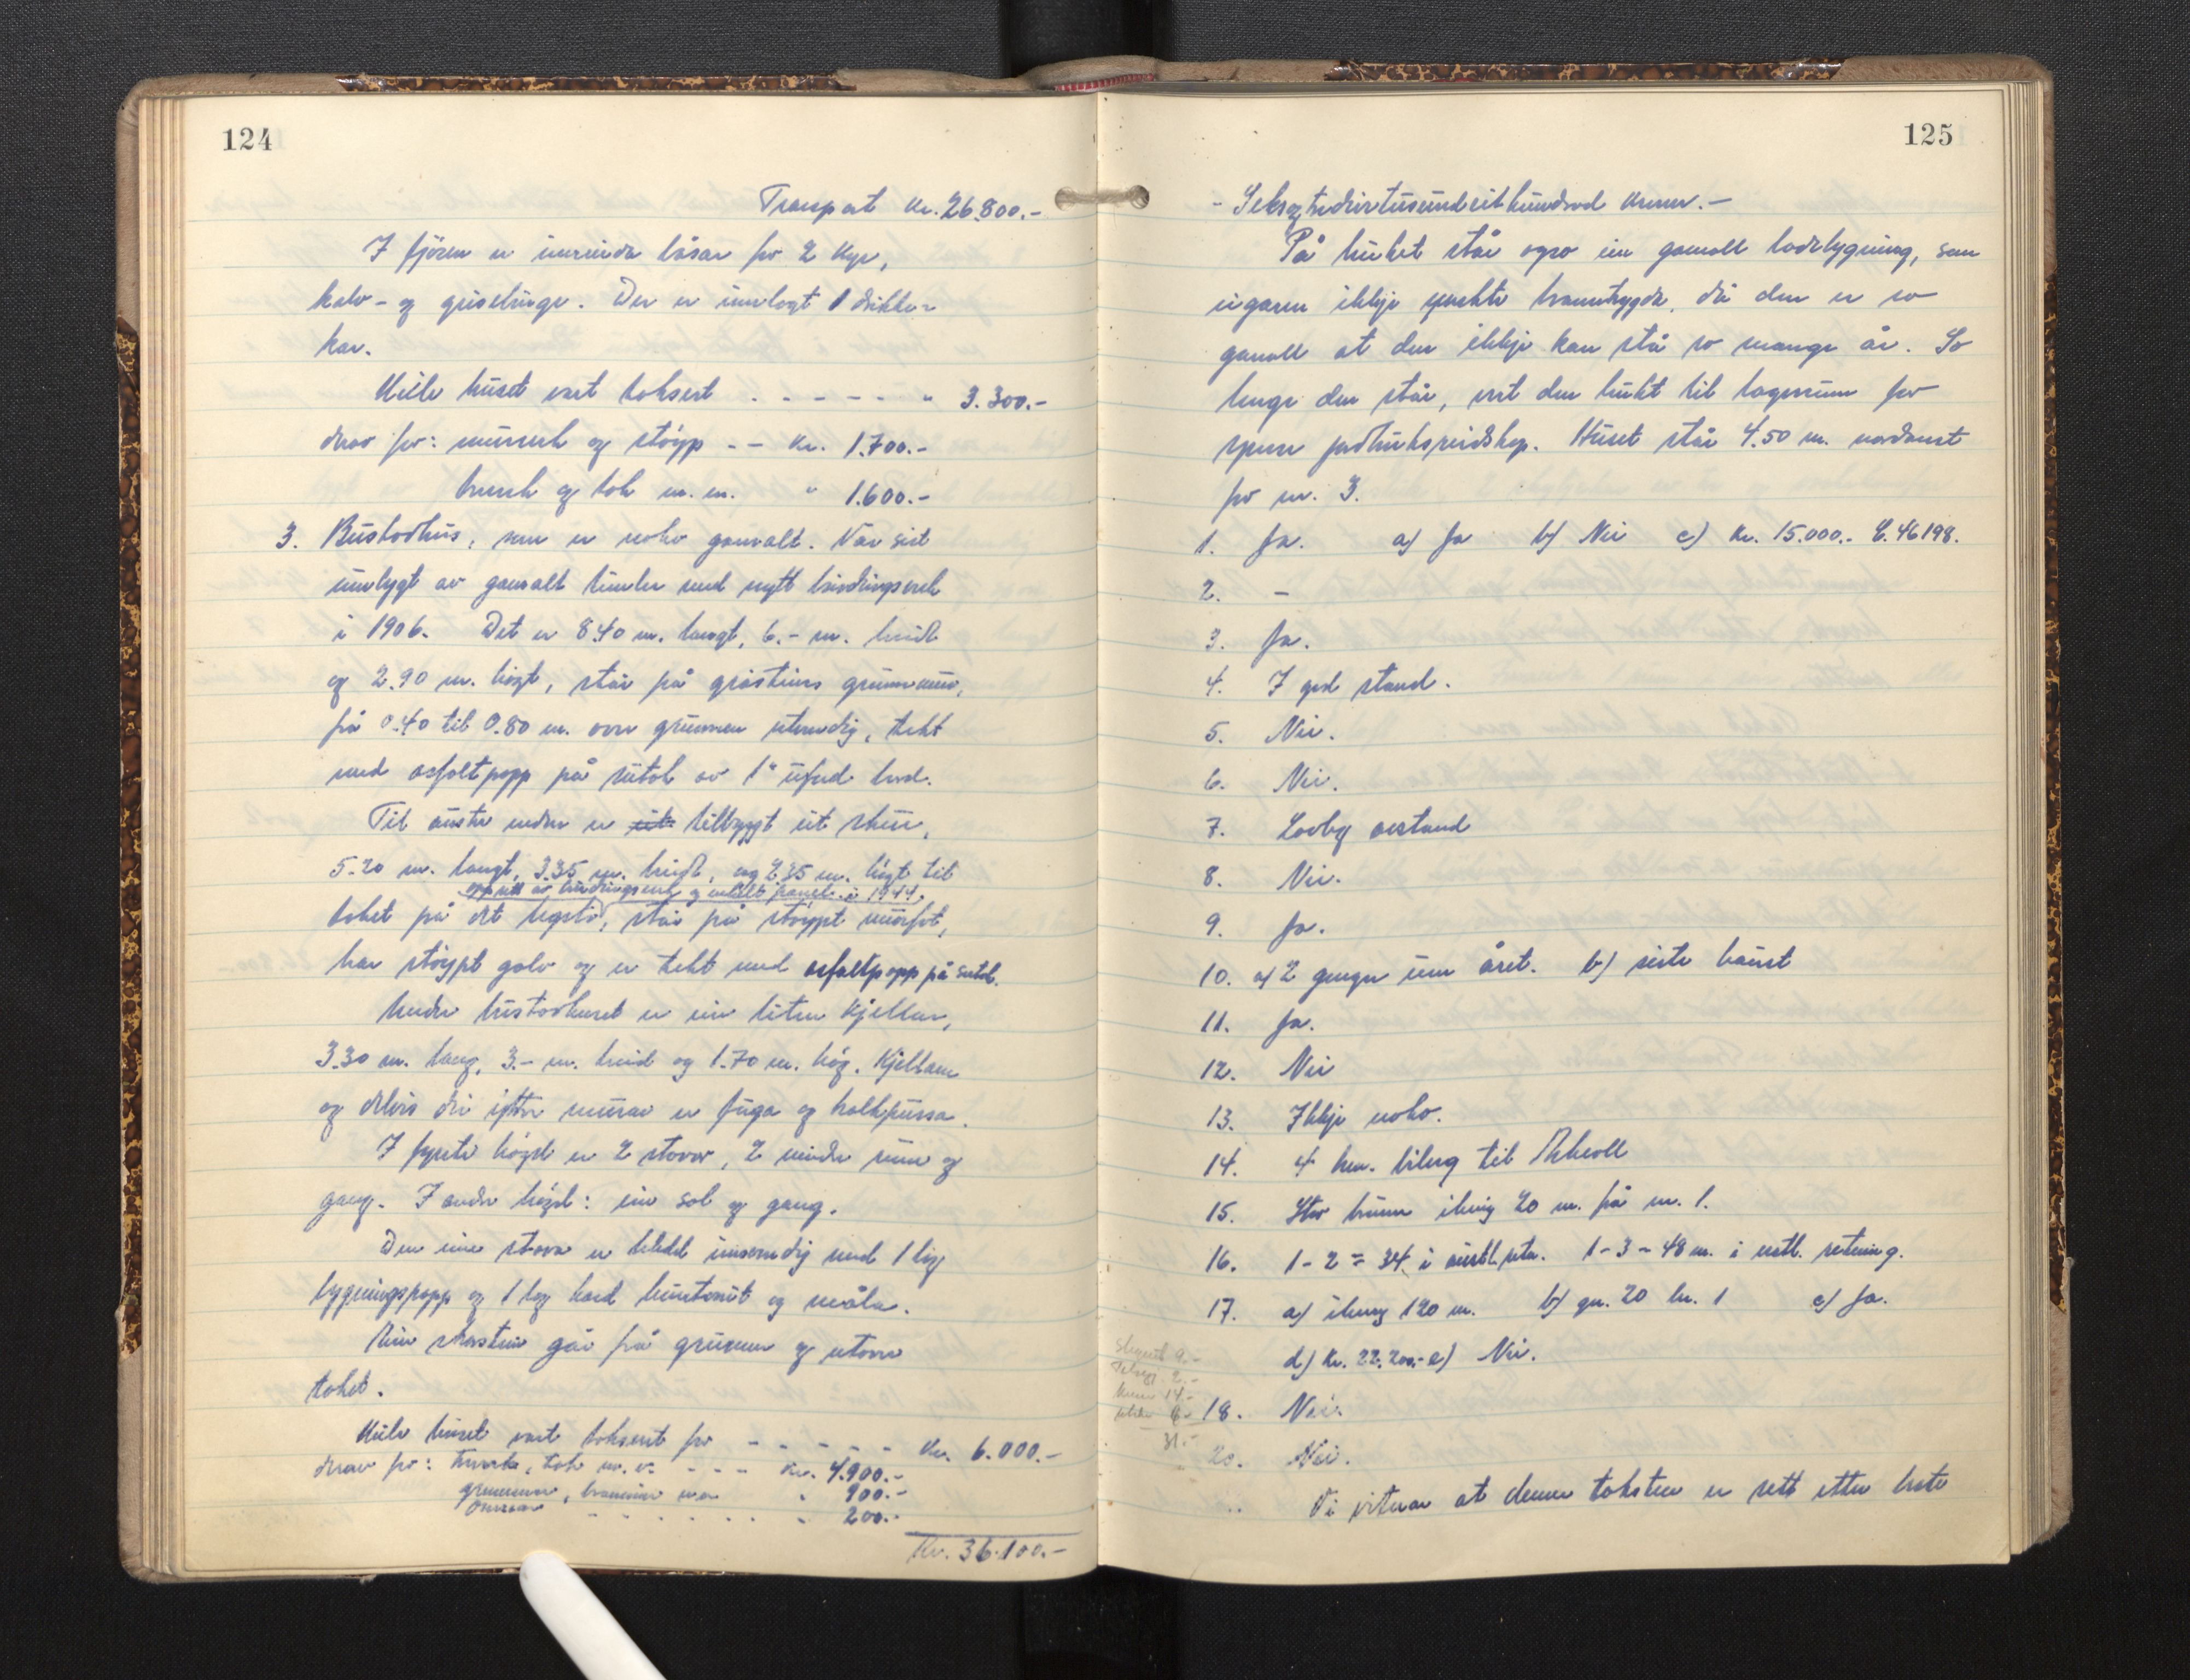 124
Transport Kr. 26.800.-
I fjøsen er innreidde båsar for 2 kyr,
kalv- og grisebinge. Der er innlagt 1 drikke-
kar.
Heile huset vart taksert . - - - - - " 3.300.-
derav for: murverk og støyp - - Kr. 1.700.-
treverk og tak m. m. " 1.600.-
3. Bustadhus, som er noko gamalt. Var sist
umbygt av gamalt timber med nytt bindingsverk
i 1906. Det er 8.40 m. langt, 6.- m. breidt
og 2.90 m. høgt, står på gråsteins grunnmur,
frå 0.40 til 0.80 m. over grunnen utvendig, tekt
med asfaltpapp på sutak av 1" uføed bord.
Til austre enden er eit tilbygt eit skur,
5.20 m. langt, 3.35 m. breidt, og 2.35 m. høgt til
oppsett av bindingsverk og enkelt panel i 1944.
taket på det lægste, står på støypt murfot,
har støypt golv og er tekt med asfaltpapp på sutak.
Under bustadhuset er ein liten kjellar,
3.30 m. lang, 3.- m. breid og 1.70 m. høg. Kjellaren
og delvis dei ytre murar er fuga og kalkpussa.
I fyrste høgd er 2 stover, 2 mindre rum og
gang. I andre høgd: ein sal og gang.
Den eine stova er kledd innvendig med 1 lag
bygningspapp og 1 lag hard huntonit og måla.
Ein skorstein går frå grunnen og utover
taket.
Heile huset vart taksert for - - - - - - Kr. 6.000.-
derav for: treverk, tak m. v. - - - Kr. 4.900.-
grunnmur, brannmur m.m. " 900.-
Omnar - - - . . . - 200.-
Kr. 36.100.-
125
- Seksogtredivetusundeithundrad kroner.-
På bruket står ogso ein gamall lødebygning, som
eigaren ikkje ynskte branntrygda, då den er so
gamall at den ikkje kan stå so mange år. So
lenge den står, vert den brukt til lagerrum for
ymse jordbruksreidskap. Huset står 4.50 m. nordaust
for nr. 3.
1. Ja. a) Ja b) Nei c) Kr. 15.000.- L. 46198.
2. -
3. Ja.
4. I god stand.
5. Nei.
6. Nei.
7. Lovleg avstand
8. Nei.
9. Ja.
10. a) 2 gonger um året. b) siste haust
11. Ja.
12. Nei
13. Ikkje noko.
14. 4 km. bilveg til
15. Stor brunn ikring 20 m. frå nr. 1.
16. 1 - 2 = 34. i austl. retn. 1 - 3 - 48 m. i vestl. retning.
17. a) ikring 120 m. b) gn. 20 br. 1 c) Ja.
d) Kr. 22.200.- e) Nei.
9.-
2.-
14.-
6.-
31.-
18. Nei.
20. Nei.
" Vi vitnar at denne taksten er sett etter beste